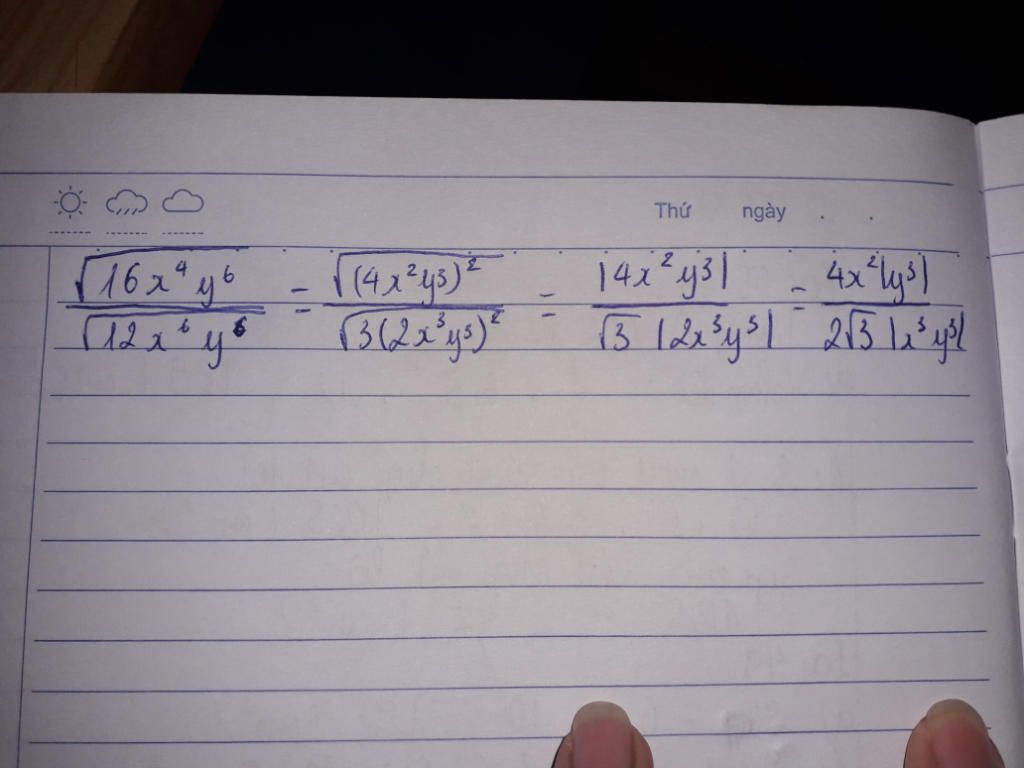 Thứ ngày . .
√(16x⁴y⁶)/√(12x⁶y⁶) = √((4x²y³)²)/√(3(2x³y³)²) = |4x²y³|/(√3 |2x³y³|) = 4x²|y³|/(2√3 |x³y³|)